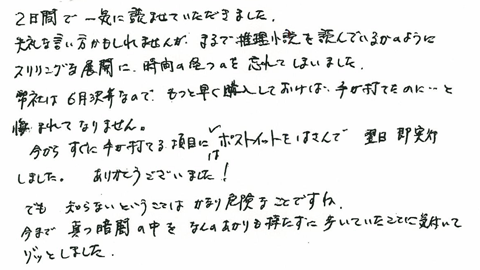 2日間で一気に読ませていただきました。
失礼な言い方かもしれませんが、まるで推理小説を読んでいるかのように
スリリングな展開に、時間の色つのを忘れてしまいました。
弊社は6月決算なので、もっと早く購入しておけば、手が打てたのに…と
悔まれてなりません。
今からすぐに手が打てる項目にはポストイットをはさんで 翌日即実行
しました。 ありがとうございました!
でも 知らないということは かなり危険なことですね。
今まで 真っ暗闇の中を なんのあかりも持たずに歩いていたことに気付いて
ゾッとしました。